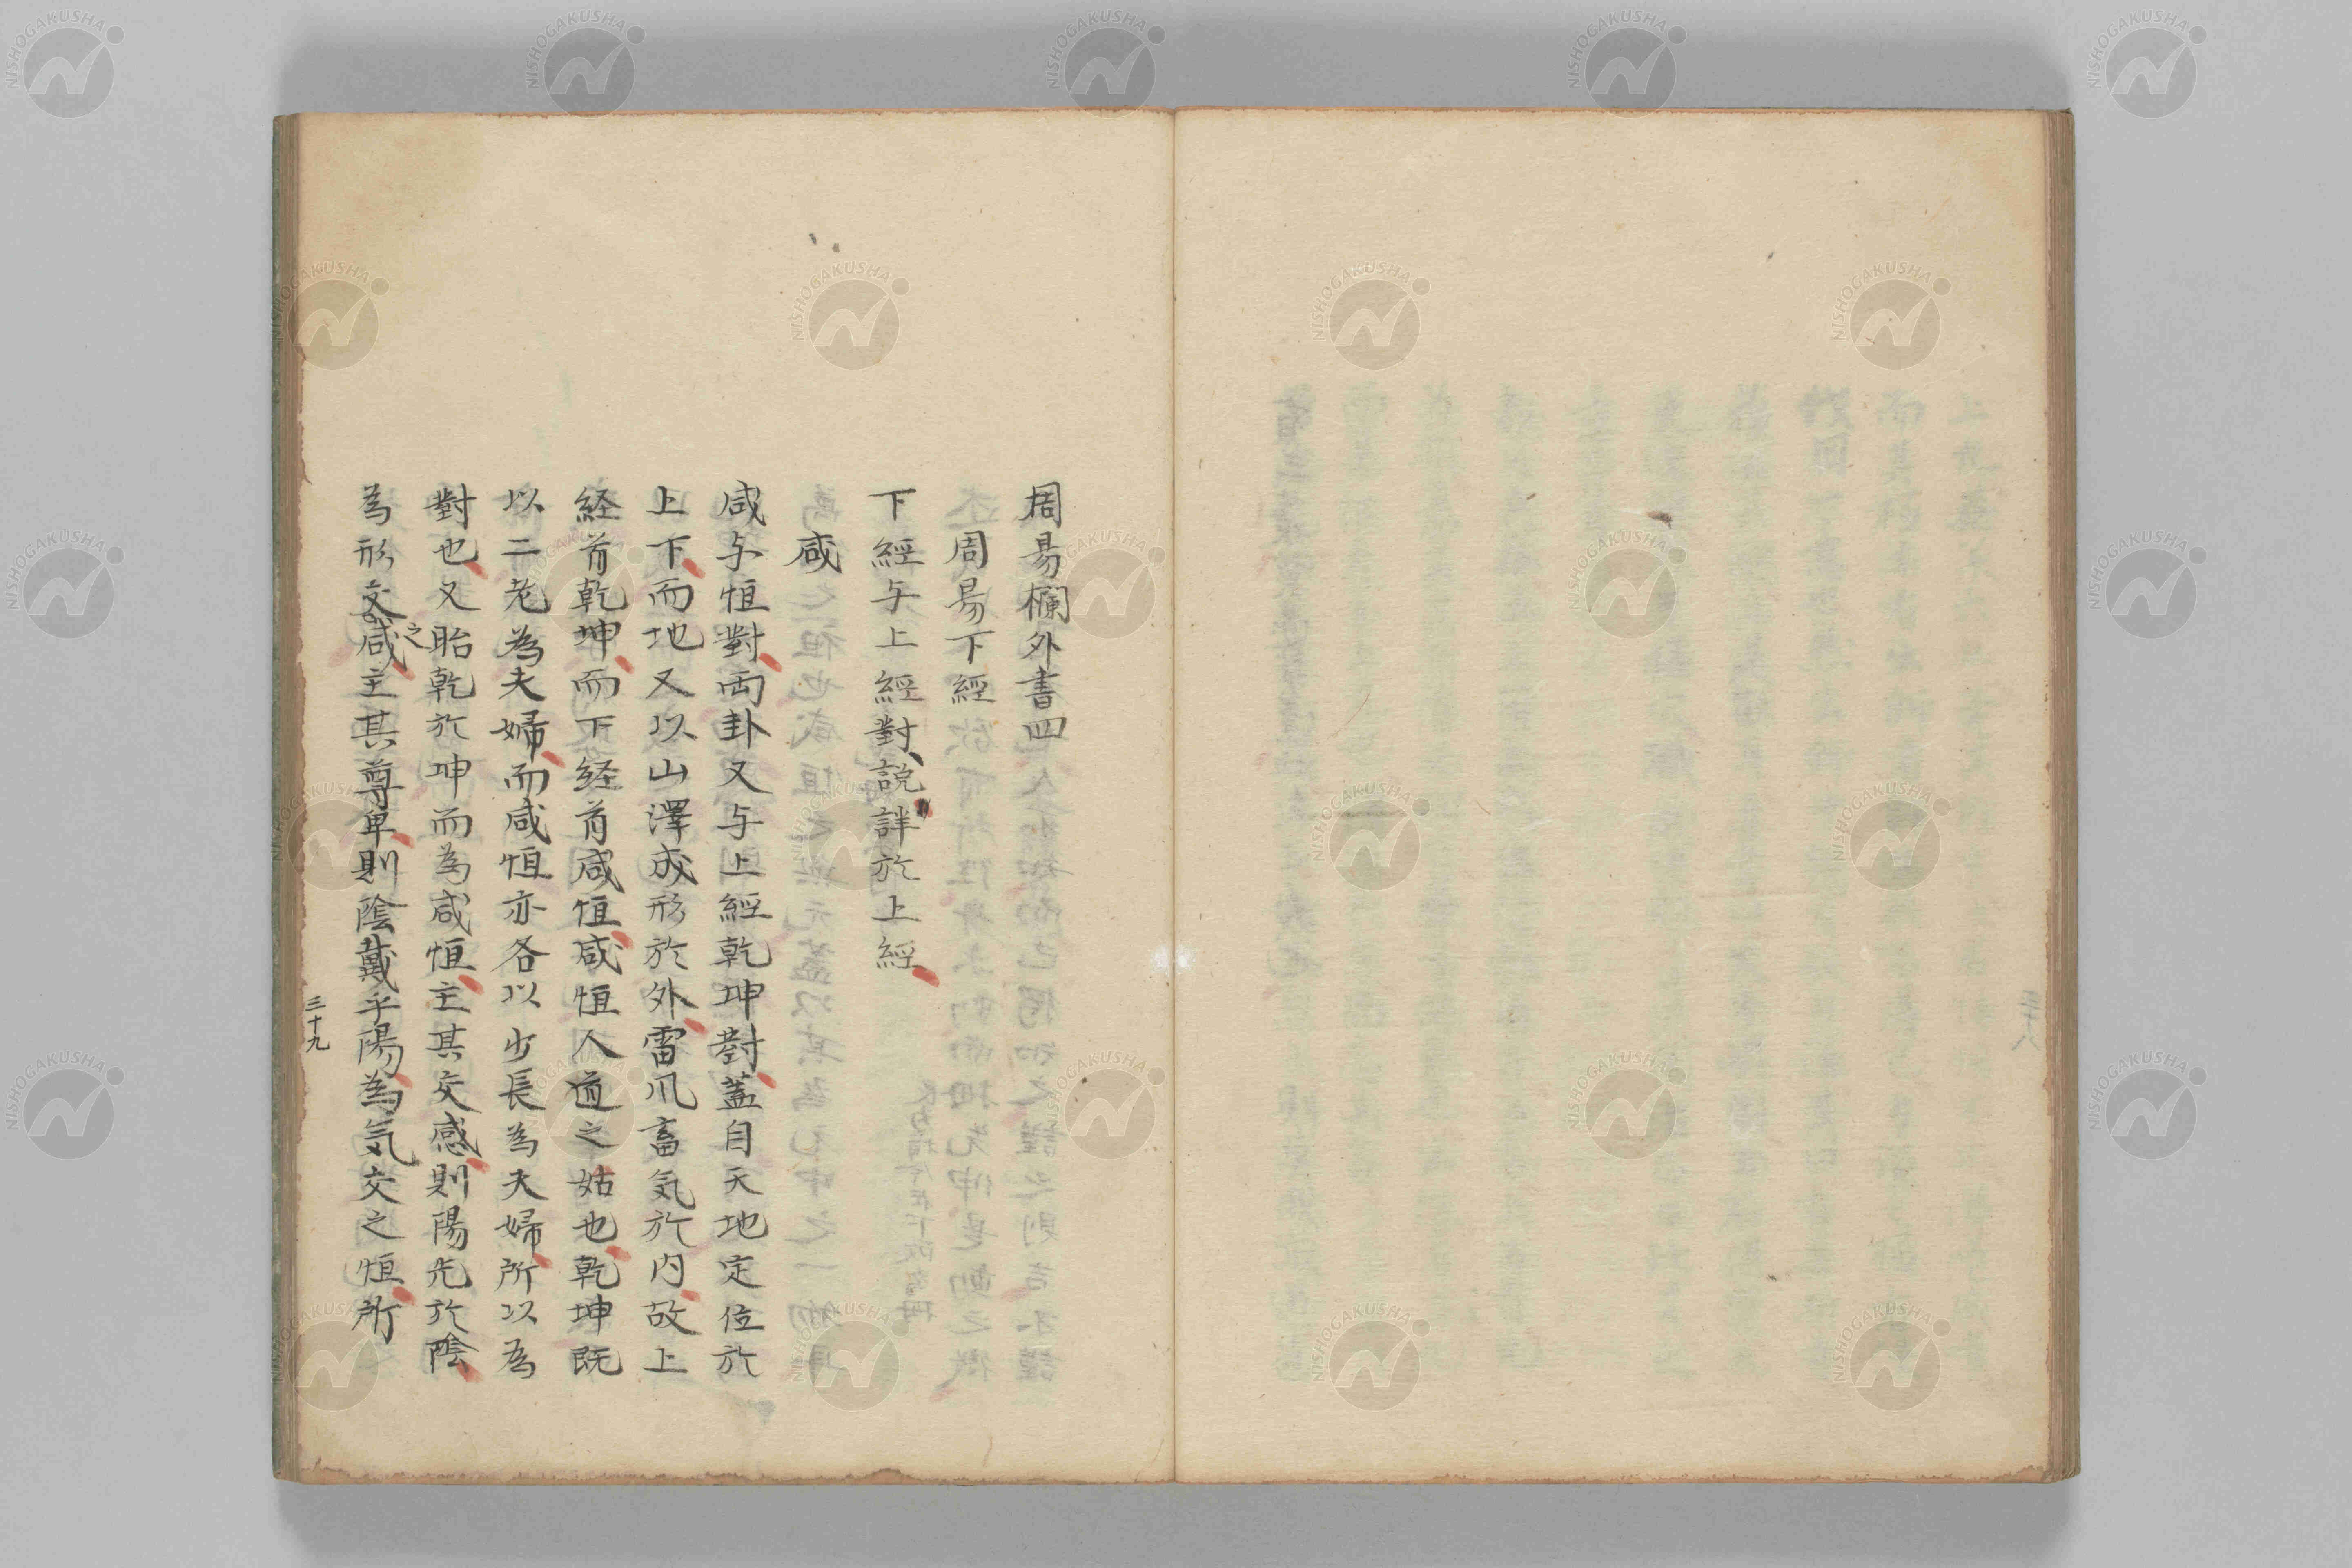 周易欄外書四
周易下經
下經与上經對說詳於上經
咸
咸与恒對両卦又与上經乾坤對蓋自天地定位於
上下而地又以山澤成形於外雷风畜気於内故上
経首乾坤而下経首咸恒咸恒人道之始也乾坤既
以二老為夫婦而咸恒亦各以少長為夫婦所以為
對也又胎乾於坤而為咸恒主其交感則陽先於陰
為形交之咸主其尊卑則陰戴乎陽為気交之恒所
三十九
NISHOGAKUSHA